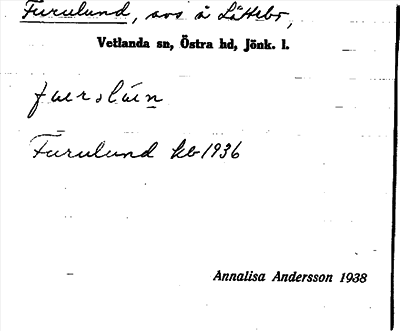 Furulund, avs å Låttebo,
Vetlanda sn, Östra hd, Jönk. l.
Furulund kb 1936
Annalisa Andersson 1938